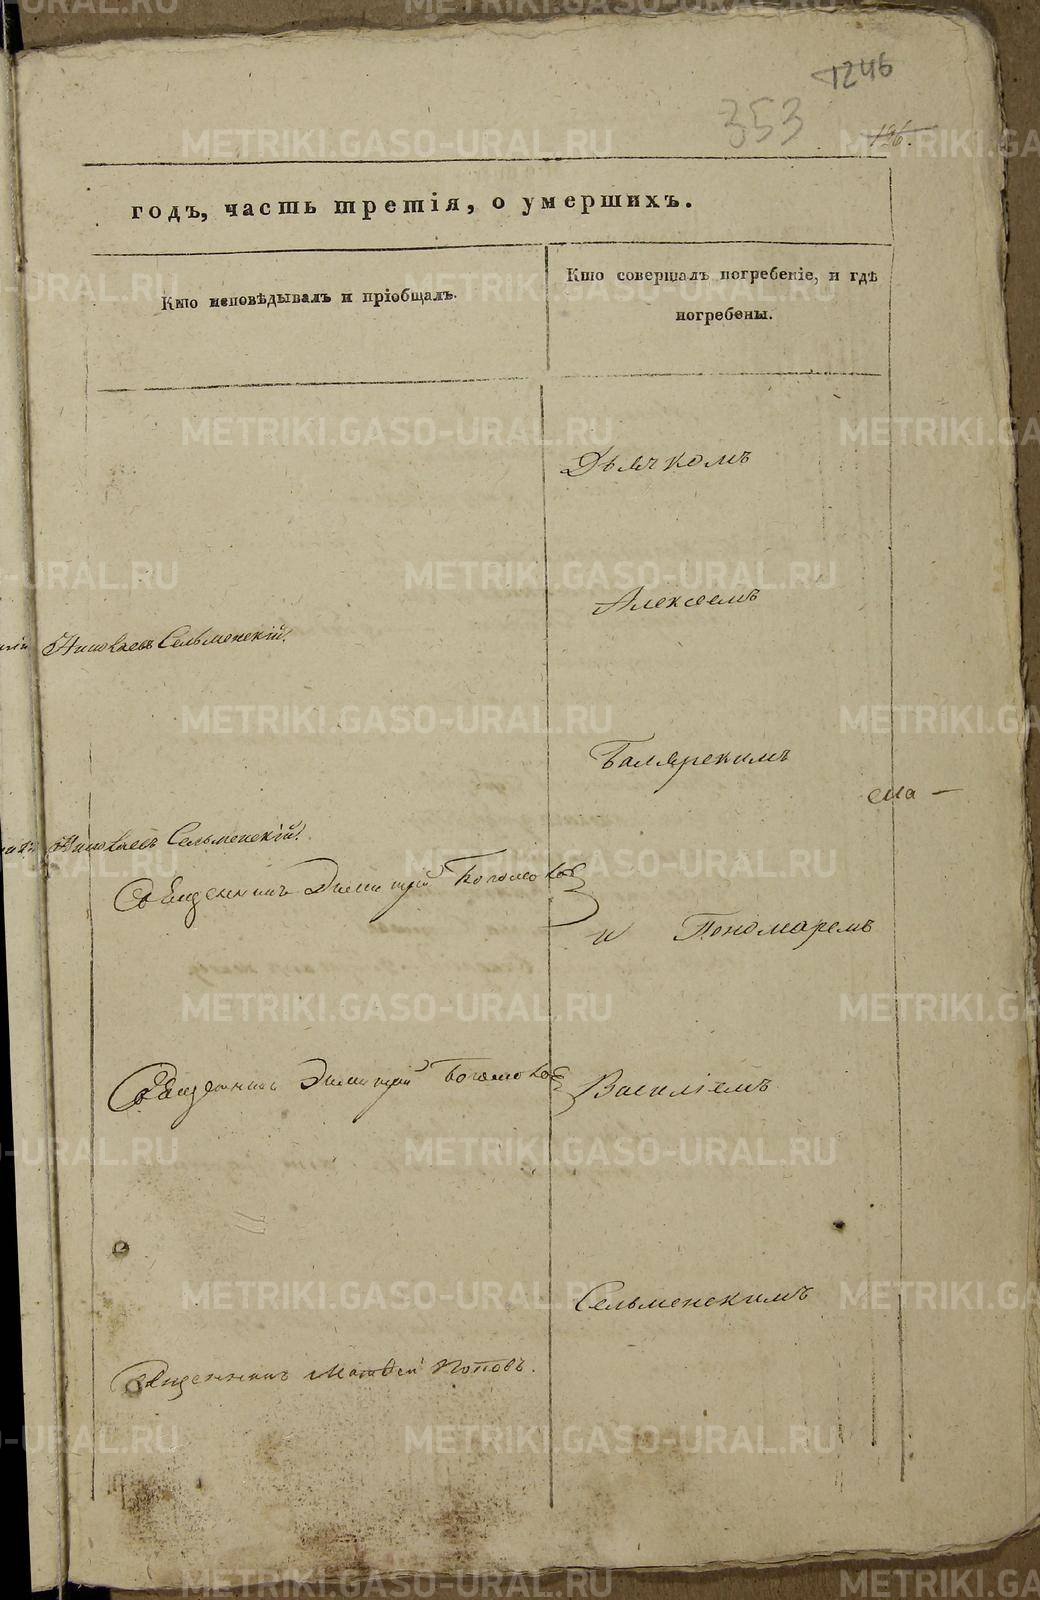 1246
353
196.
годъ, часть третія, о умершихъ.
Кто исповѣдывалъ и пріобщалъ.
Кто совершалъ погребеніе, и гдѣ
погребены.
Дьячкомъ
Алексеемъ
Николаевъ Сельменскій.
Балярскимъ
ема —
Николаевъ Сельменскій.
Священникъ Димитрій Богомолов
и Пономаремъ
Священникъ Димитрій Богомолов
Василіемъ
Сельменскимъ
Священникъ Матвей Поповъ.
METRIKI.GASO-URAL.RU